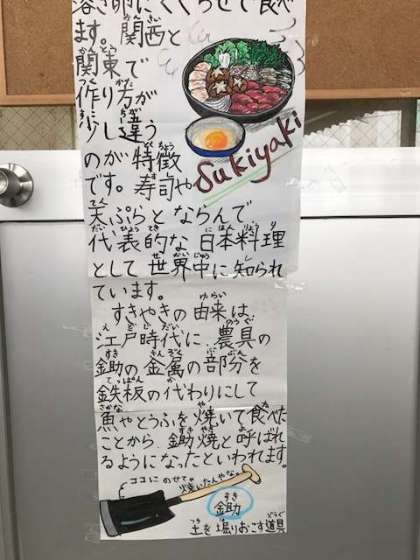 溶き卵にくぐらせて食べ
ます。関西と
関東で
作り方が
少し違う
のが特徴
です。寿司や
Sukiyaki
天ぷらとならんで
代表的な日本料理
として世界中に知られ
ています。
すきやきの由来は、
江戸時代に、農具の
鋤の金属の部分を
鉄板の代わりにして
魚やとうふを焼いて食べた
ことから鋤焼と呼ばれ
るようになったといわれます。
ココにのせて
焼いたんやな
鋤
土を堀りおこす道具